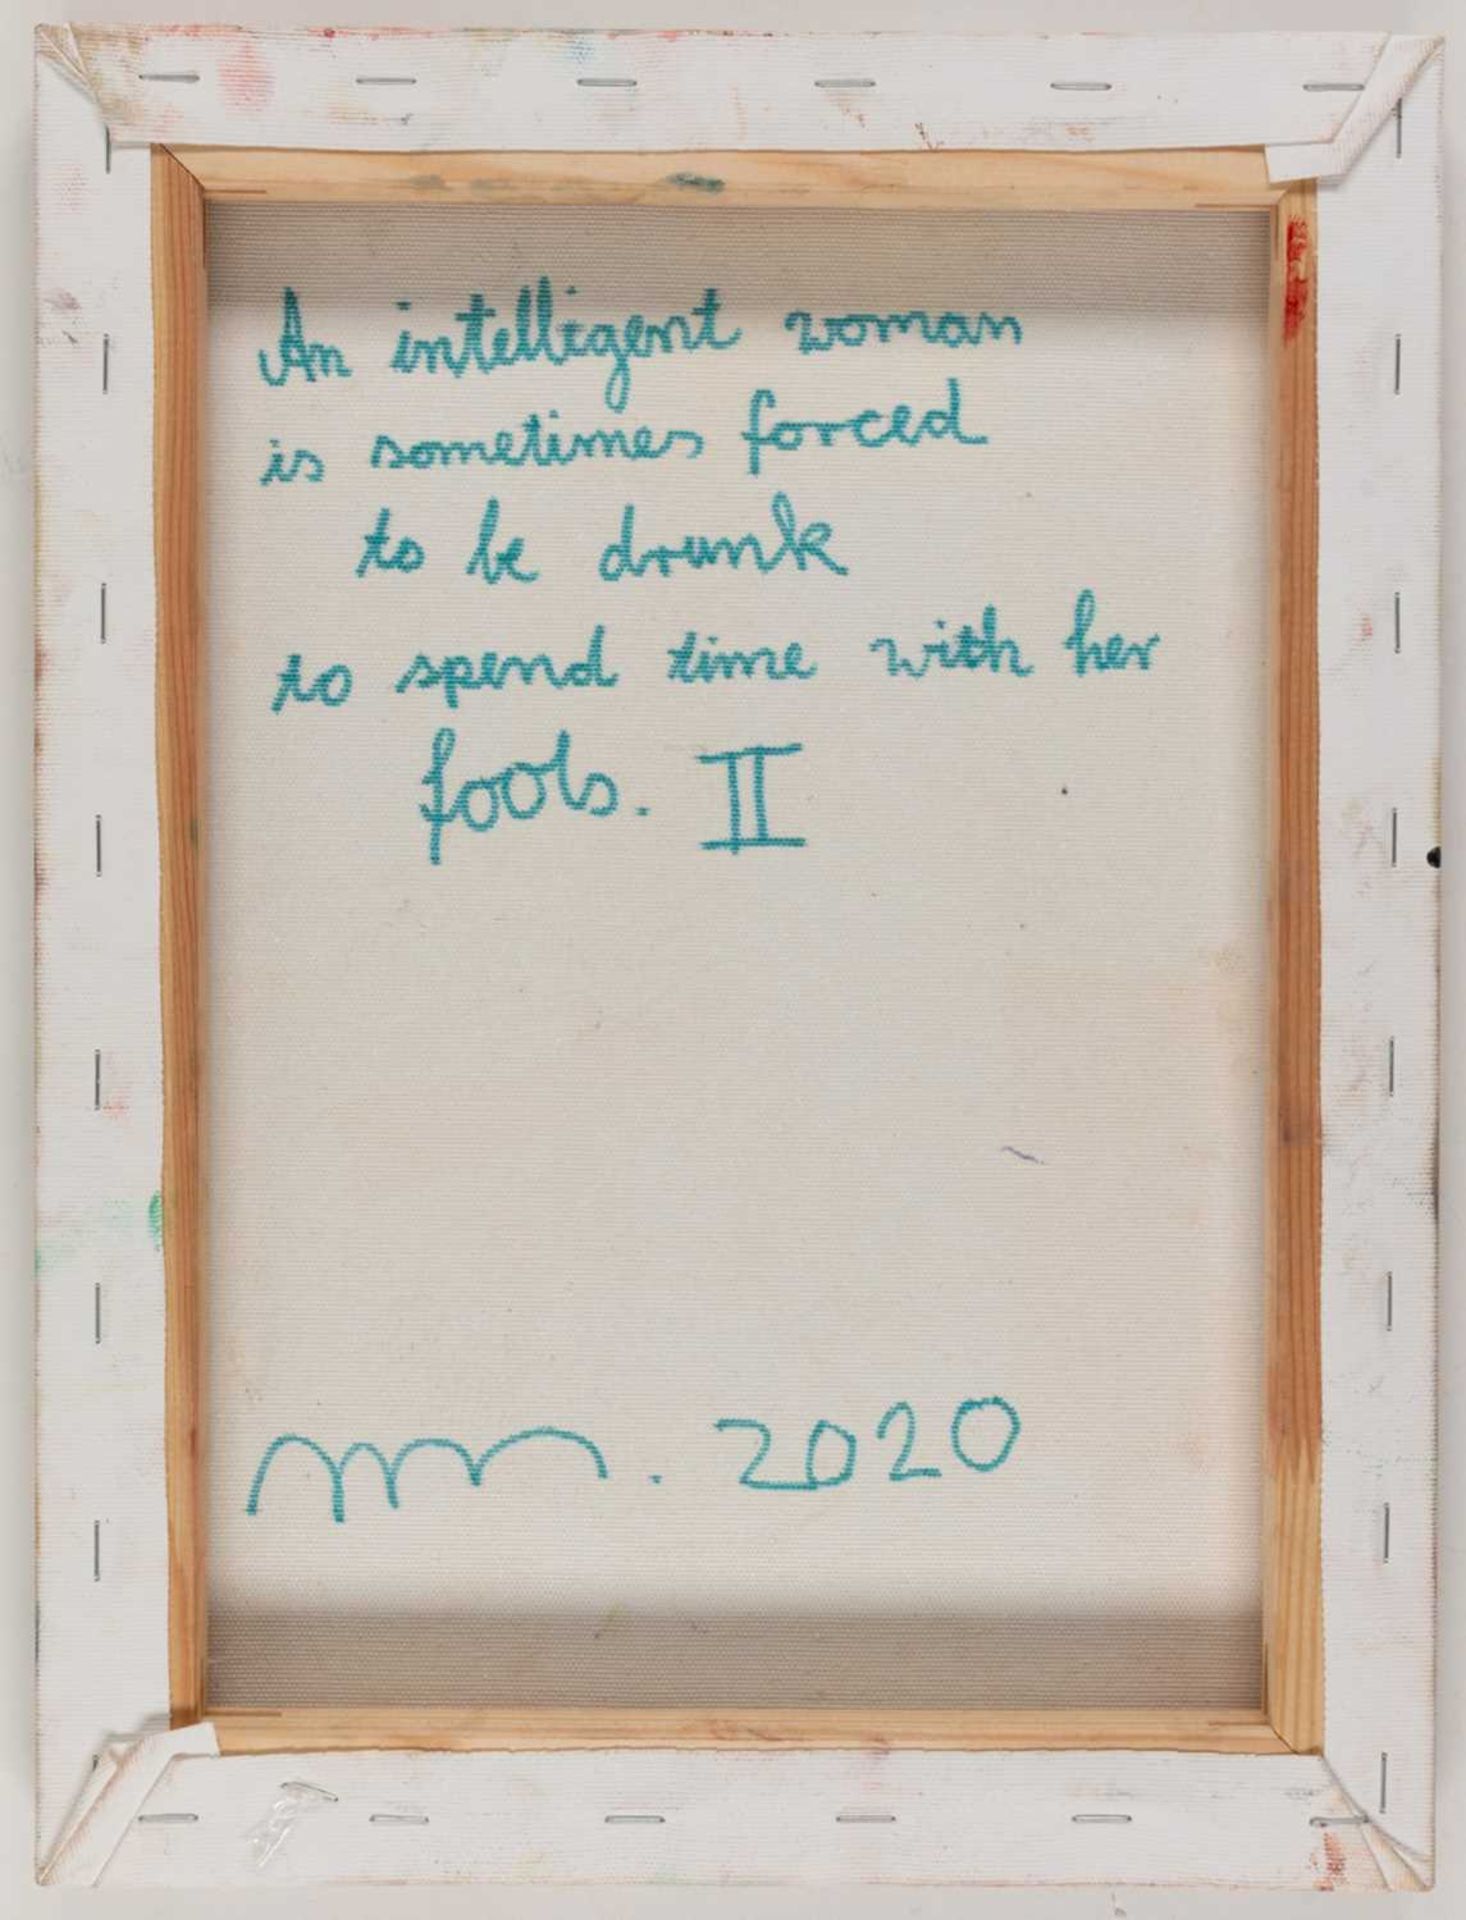 An intelligent woman
is sometimes forced
to be drunk
to spend time with her
fools. II
2020